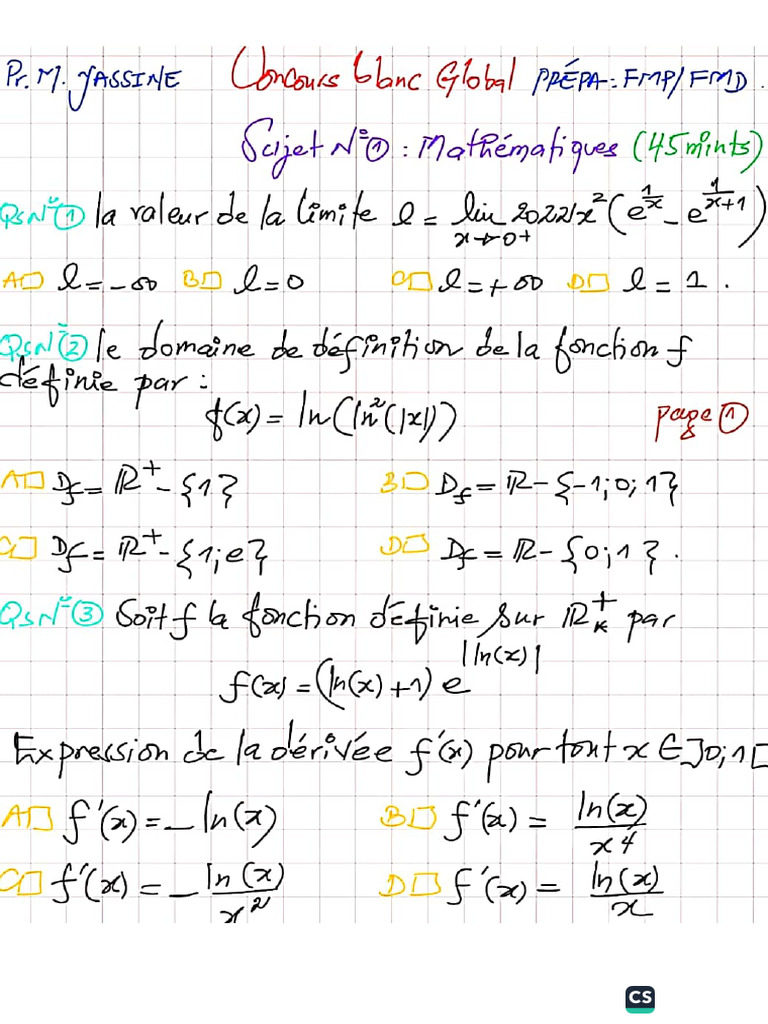 Pr. M. YASSINE Concours blanc Global PRÉPA: FMP/FMD.
Sujet N°1 : Mathématiques (45 mints)
QsN°1 la valeur de la limite l = lim x→0+ 2022x²(e^(1/x) - e^(1/(x+1)))
A□ l = -∞ B□ l = 0 C□ l = +∞ D□ l = 1.
QsN°2 le domaine de définition de la fonction f
définie par :
f(x) = ln(ln²(|x|)) page 1
A□ Df = ℝ⁺ - {1} B□ Df = ℝ - {-1; 0; 1}
C□ Df = ℝ⁺ - {1; e} D□ Df = ℝ - {0; 1}.
QsN°3 Soit f la fonction définie sur ℝ*⁺ par
f(x) = (ln(x) + 1) e^|ln(x)|
Expression de la dérivée f'(x) pour tout x ∈ ]0; 1[
A□ f'(x) = -ln(x) B□ f'(x) = ln(x)/x⁴
C□ f'(x) = -ln(x)/x² D□ f'(x) = ln(x)/x
CS